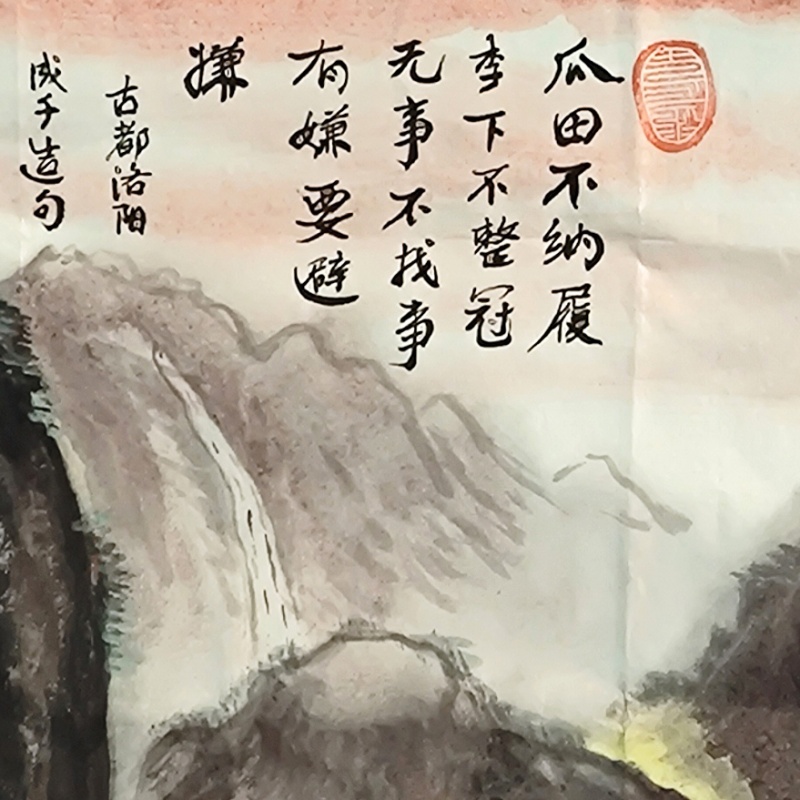 瓜田不纳履
李下不整冠
无事不找事
有嫌要避
嫌
古都洛阳
成千造句